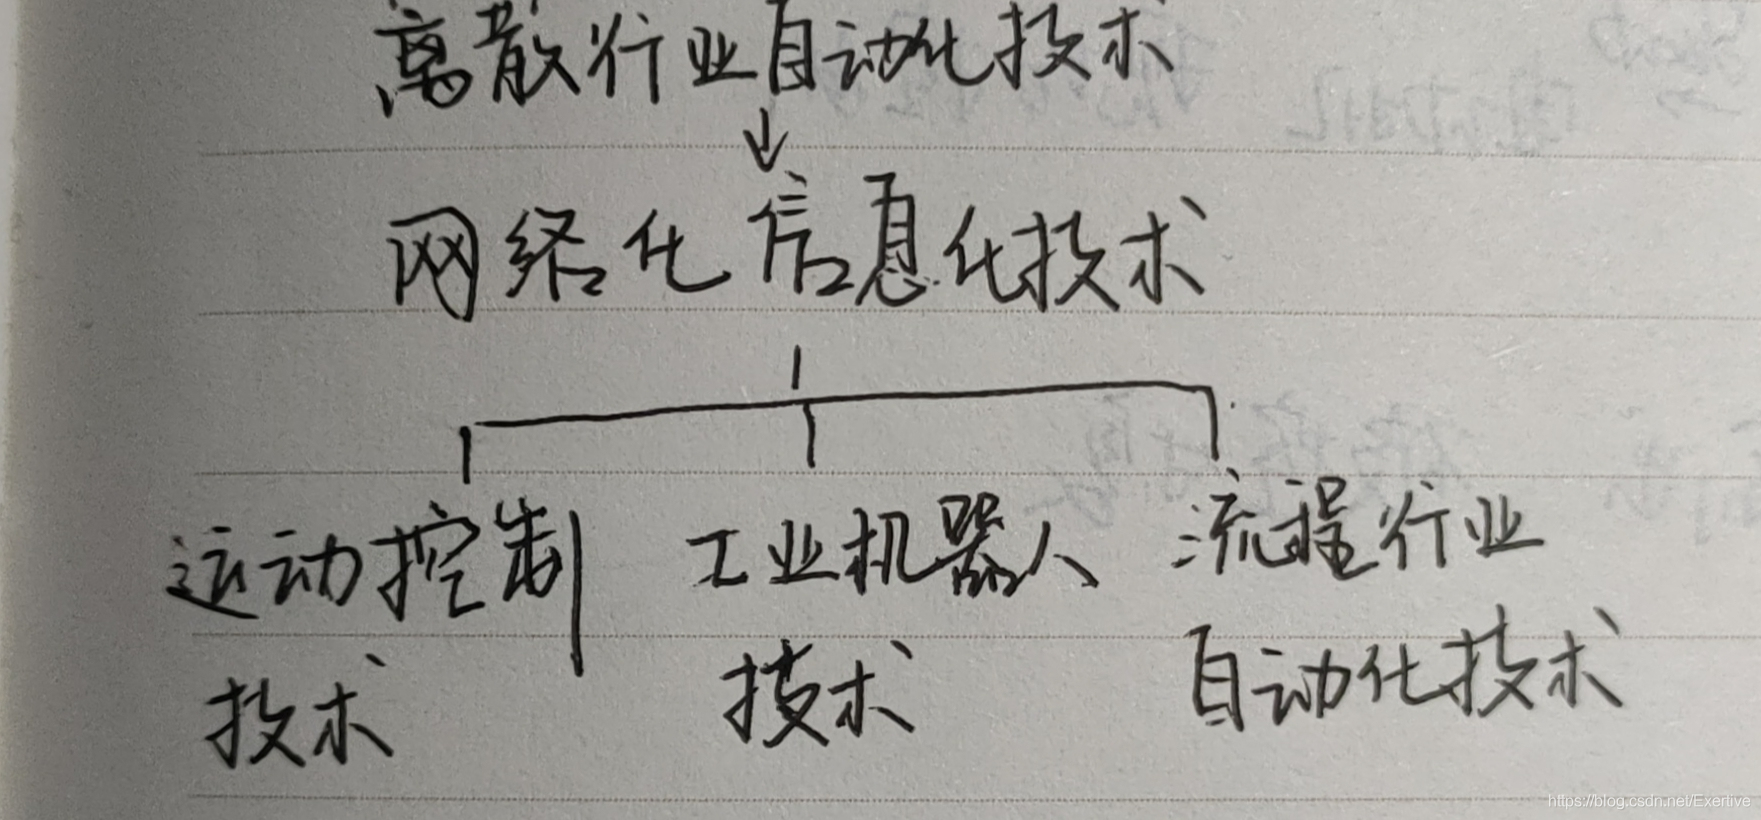 离散行业自动化技术
↓
网络化信息化技术
运动控制 工业机器人 流程行业
技术 技术 自动化技术
https://blog.csdn.net/Exertive